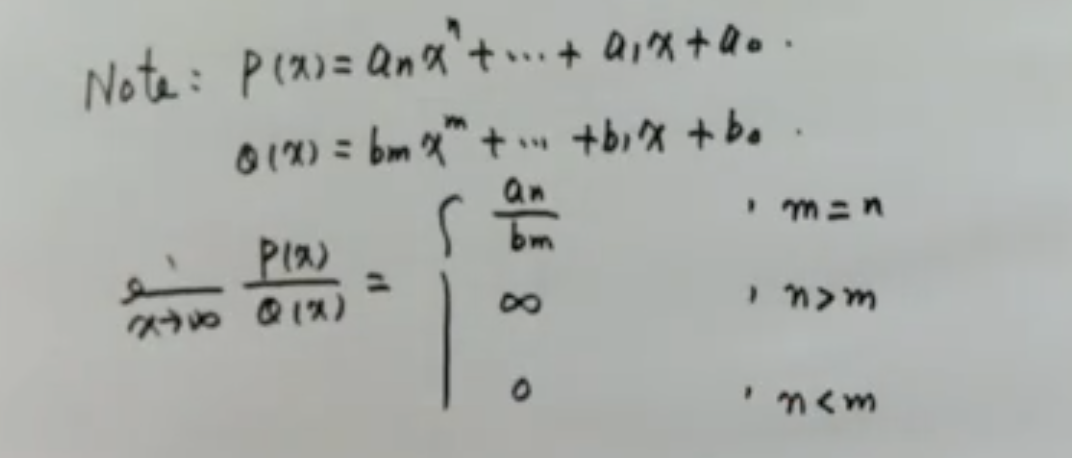 Note: P(x) = aₙxⁿ + ... + a₁x + a₀.
Q(x) = bₘxᵐ + ... + b₁x + b₀.
x→∞ P(x)/Q(x) = { aₙ/bₘ , m = n
∞ , n > m
0 , n < m